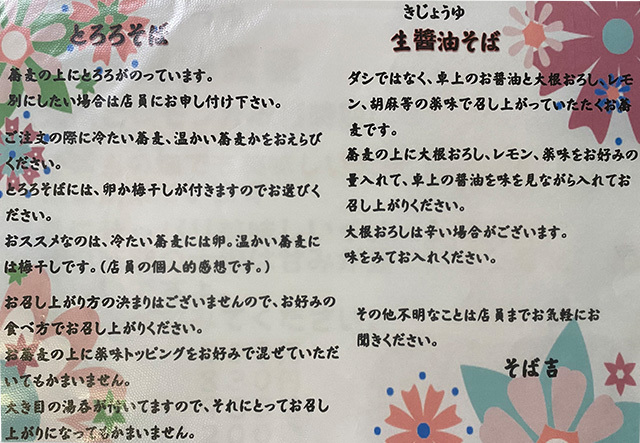 とろろそば
蕎麦の上にとろろがのっています。
別にしたい場合は店員にお申し付け下さい。
ご注文の際に冷たい蕎麦、温かい蕎麦かをおえらび
ください。
とろろそばには、卵か梅干しが付きますのでお選びく
ださい。
おススメなのは、冷たい蕎麦には卵。温かい蕎麦に
は梅干しです。(店員の個人的感想です。)
お召し上がり方の決まりはございませんので、お好みの
食べ方でお召し上がりください。
お蕎麦の上に薬味トッピングをお好みで混ぜていただ
いてもかまいません。
大き目の湯呑が付いてますので、それにとってお召し
上がりになってもかまいません。
きじょうゆ
生醬油そば
ダシではなく、卓上のお醬油と大根おろし、レモ
ン、胡麻等の薬味で召し上がっていたたくお蕎
麦です。
蕎麦の上に大根おろし、レモン、薬味をお好みの
量入れて、卓上の醬油を味を見ながら入れてお
召し上がりください。
大根おろしは辛い場合がございます。
味をみてお入れください。
その他不明なことは店員までお気軽にお
聞きください。
そば吉